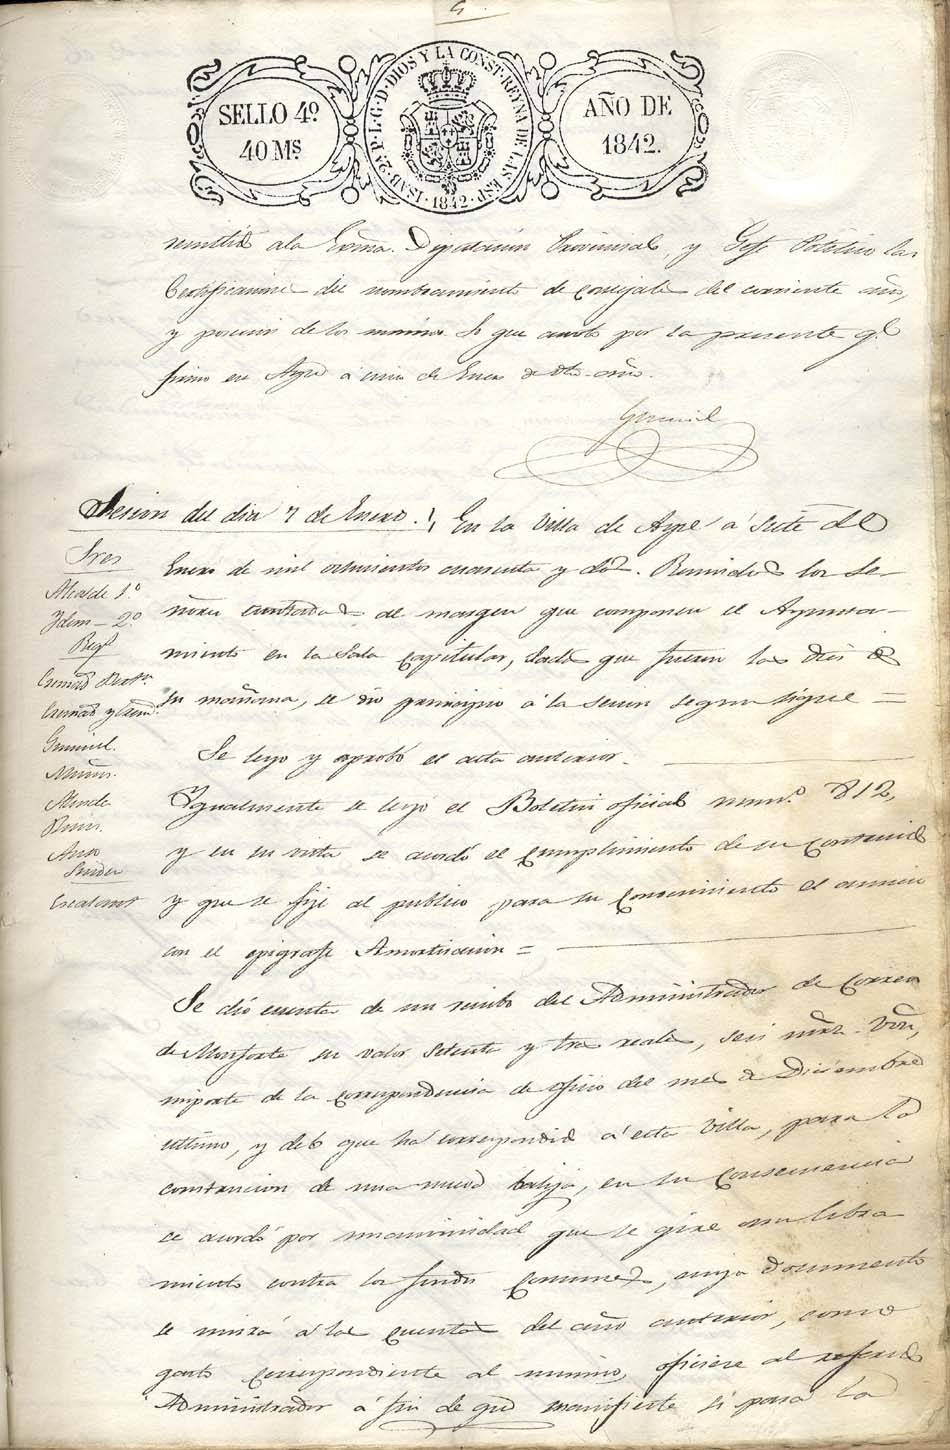 4.
SELLO 4º
40 Mˢ
ISAB. 2ª P. L. G. D. DIOS Y LA CONST. REYNA DE LAS ESP.
1842
AÑO DE
1842.
remitido a la Exma. Diputacion Provincial, y Gefe Politico las
Certificaciones del nombramiento de concejales del corriente año,
y posesion de los mismos. Lo que anoto por la presente q.e
firmo en Aspe á cinco de Enero de dho. año.
Gumiel
Sesion del dia 7 de Enero. En la Villa de Aspe á Siete de
Sres
Alcalde 1.º
Ydem - 2.º
Reg.s
Gumiel.
Muñoz.
Almela
Sindco
Escolano
Enero de mil ochocientos cuarenta y dos. Reunidos los Se-
ñores anotados al margen que componen el Ayunta-
miento en la Sala Capitular, dada que fueron las diez de
su mañana, se dio principio á la sesion segun sigue =
Se leyo y aprobó el acta anterior.
Ygualmente se leyó el Boletin oficial num.º 812,
y en su vista se acordó el cumplimiento de su contenido
y que se fije al publico para su conocimiento el anuncio
con el epigrafe Amortizacion =
Se dió cuenta de un recibo del Administrador de Correos
de Monforte su valor setenta y tres reales, seis mrs. von,
importe de la correspondencia de oficio del mes de Diciembre
ultimo, y de lo que há correspondido á esta Villa, para la
construccion de una nueva balija, en su consecuencia
se acordó por unanimidad que se gire un libra
miento contra los fondos comunes, cuyo documento
se unirá á las cuentas del año anterior, como
gasto correspondiente al mismo, oficiese al referido
Administrador á fin de que manifieste si para la